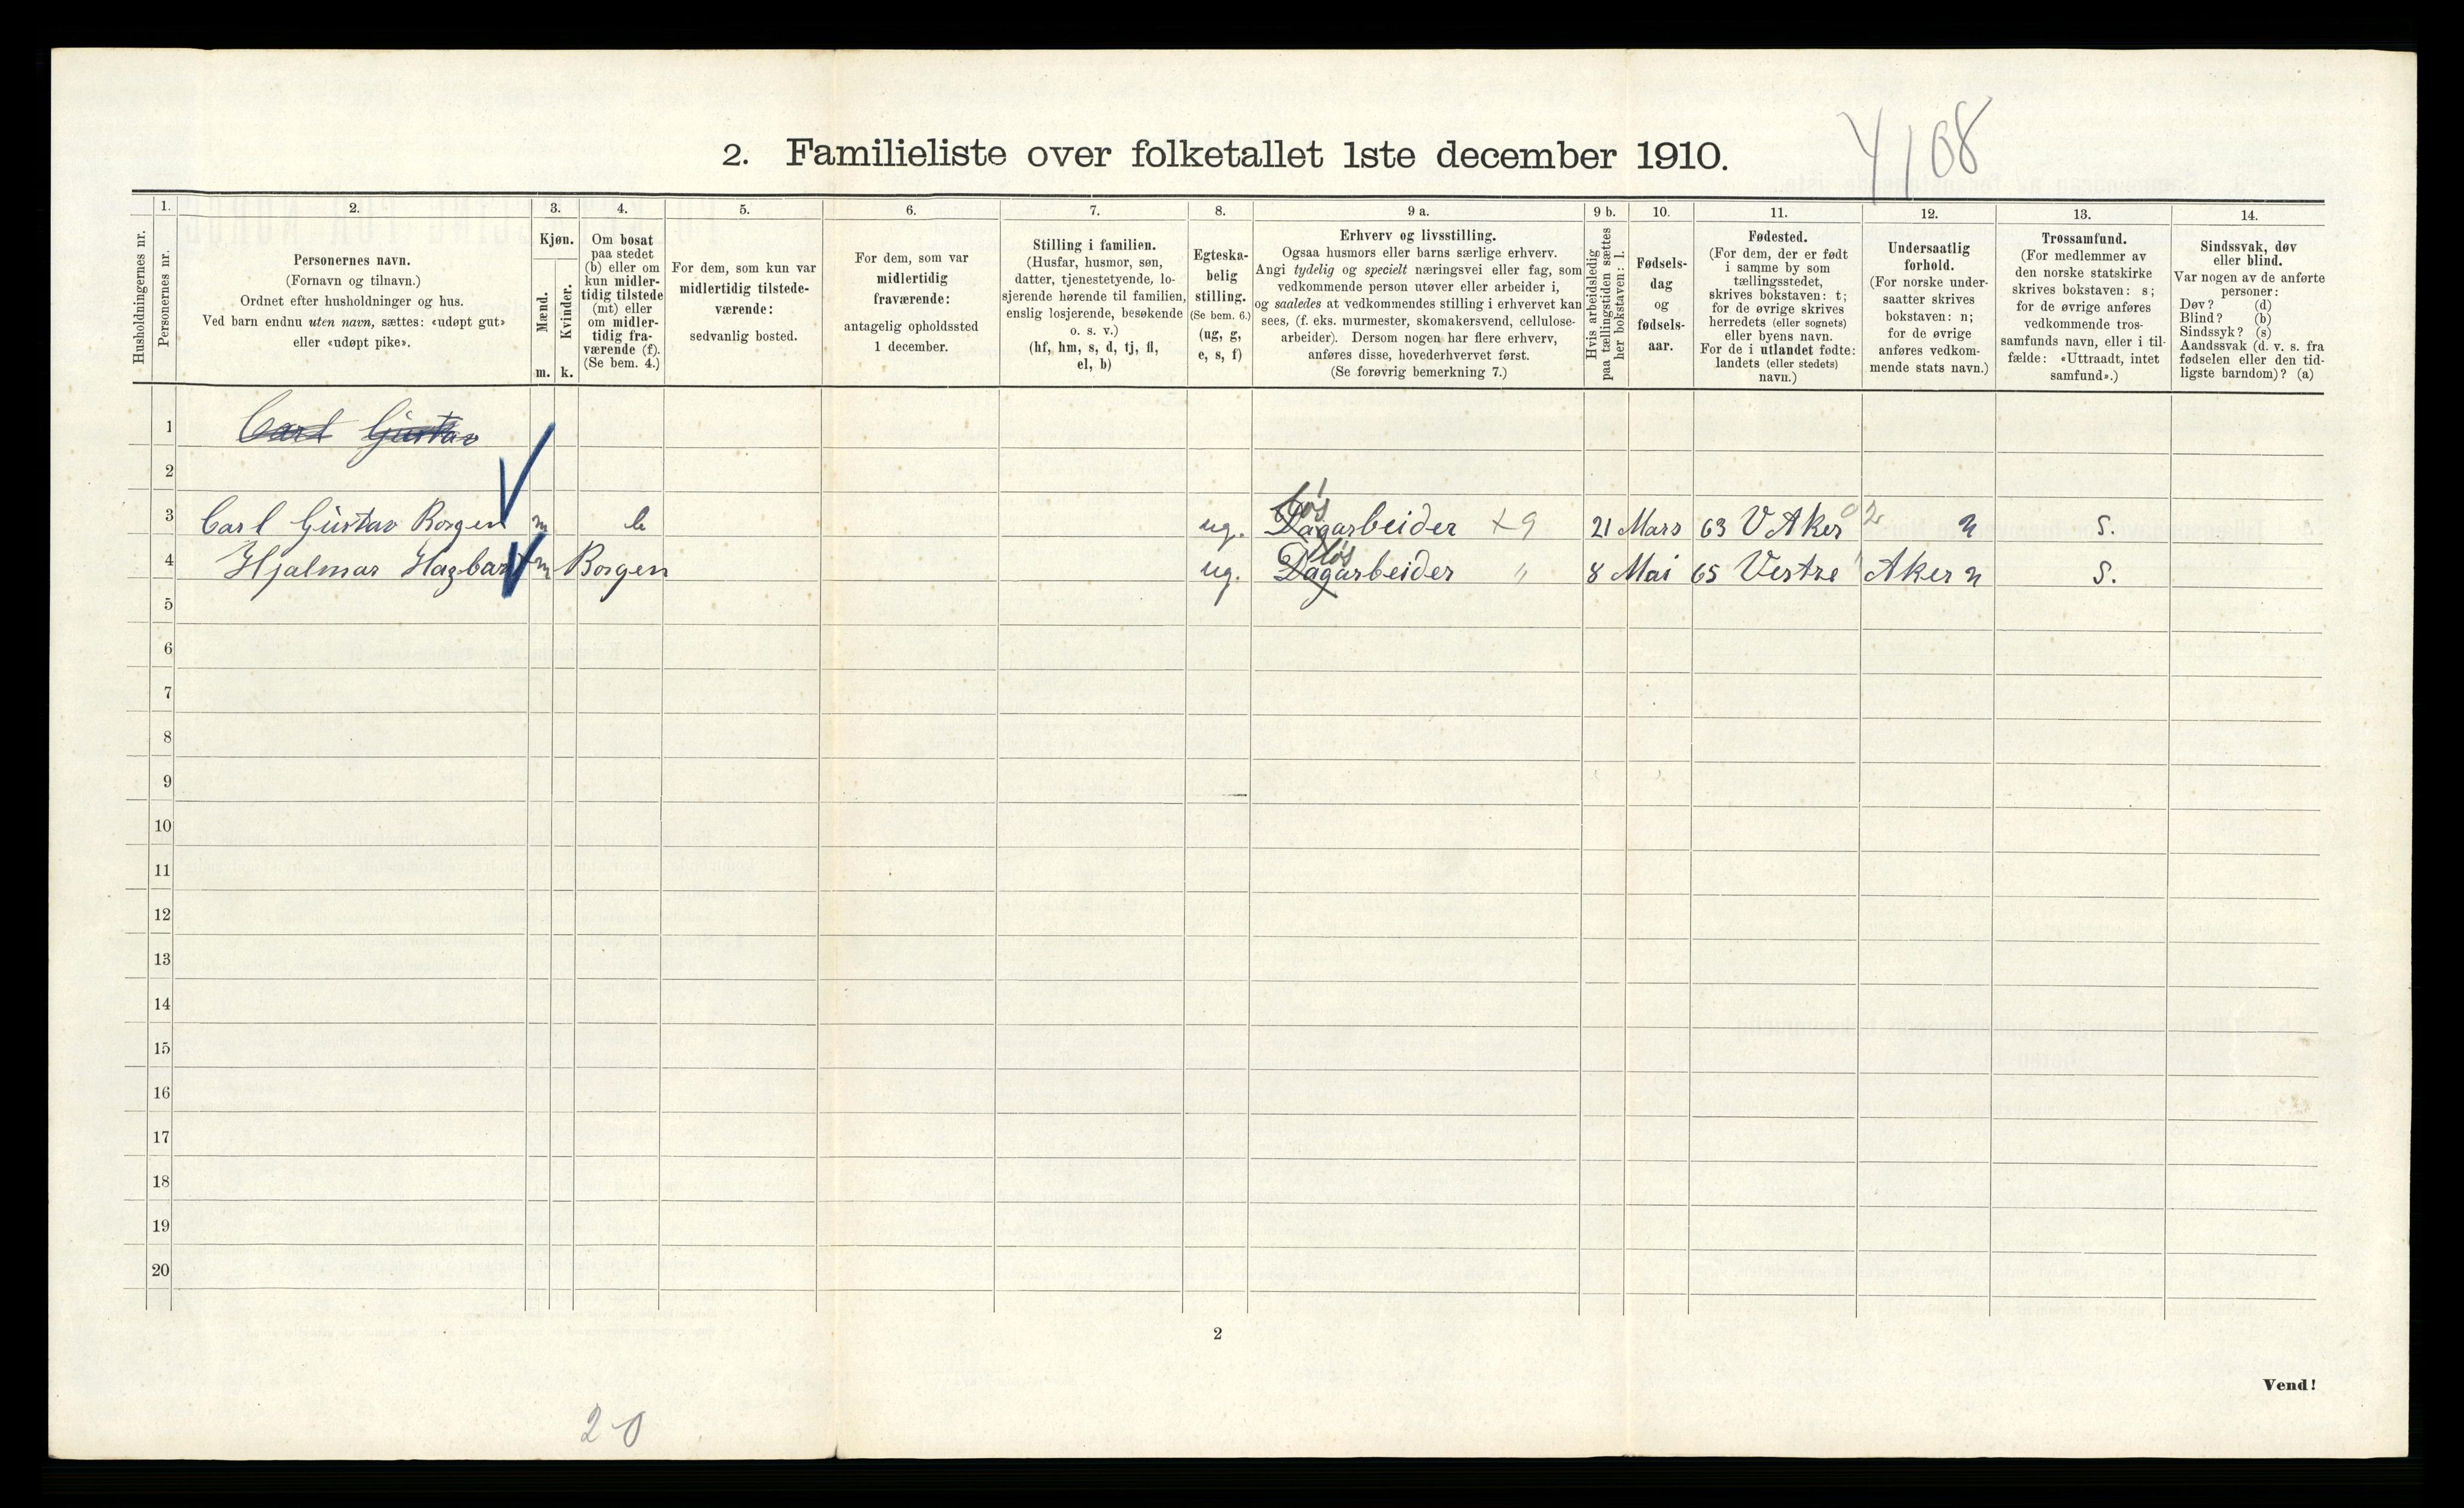 4/68
2. Familieliste over folketallet 1ste december 1910.
Husholdningernes nr.
1.
Personernes nr.
2.
Personernes navn.
(Fornavn og tilnavn.)
Ordnet efter husholdninger og hus.
Ved barn endnu uten navn, sættes: «udøpt gut»
eller «udøpt pike».
3.
Kjøn.
Mænd.
Kvinder.
m. k.
4.
Om bosat
paa stedet
(b) eller om
kun midler-
tidig tilstede
(mt) eller
om midler-
tidig fra-
værende (f).
(Se bem. 4.)
5.
For dem, som kun var
midlertidig tilstede-
værende:
sedvanlig bosted.
6.
For dem, som var
midlertidig
fraværende:
antagelig opholdssted
1 december.
7.
Stilling i familien.
(Husfar, husmor, søn,
datter, tjenestetyende, lo-
sjerende hørende til familien,
enslig losjerende, besøkende
o. s. v.)
(hf, hm, s, d, tj, fl,
el, b)
8.
Egteska-
belig
stilling.
(Se bem. 6.)
(ug, g,
e, s, f)
9 a.
Erhverv og livsstilling.
Ogsaa husmors eller barns særlige erhverv.
Angi tydelig og specielt næringsvei eller fag, som
vedkommende person utøver eller arbeider i,
og saaledes at vedkommendes stilling i erhvervet kan
sees, (f. eks. murmester, skomakersvend, cellulose-
arbeider). Dersom nogen har flere erhverv,
anføres disse, hovederhvervet først.
(Se forøvrig bemerkning 7.)
9 b.
Hvis arbeidsledig
paa tællingstiden sættes
her bokstaven: l.
10.
Fødsels-
dag
og
fødsels-
aar.
11.
Fødested.
(For dem, der er født
i samme by som
tællingsstedet,
skrives bokstaven: t;
for de øvrige skrives
herredets (eller sognets)
eller byens navn.
For de i utlandet fødte:
landets (eller stedets)
navn.)
12.
Undersaatlig
forhold.
(For norske under-
saatter skrives
bokstaven: n;
for de øvrige
anføres vedkom-
mende stats navn.)
13.
Trossamfund.
(For medlemmer av
den norske statskirke
skrives bokstaven: s;
for de øvrige anføres
vedkommende tros-
samfunds navn, eller i til-
fælde: «Uttraadt, intet
samfund».)
14.
Sindssvak, døv
eller blind.
Var nogen av de anførte
personer:
Døv? (d)
Blind? (b)
Sindssyk? (s)
Aandssvak (d. v. s. fra
fødselen eller den tid-
ligste barndom)? (a)
1 Carl Gustav
2
3 Carl Gustav Borgen m b ug. Dagarbeider løs x9 21 Mars 63 V Aker 02 n S.
4 Hjalmar Hagbart m Borgen ug. Dagarbeider løs " 8 Mai 65 Vestre Aker n S.
5
6
7
8
9
10
11
12
13
14
15
16
17
18
19
20
2
Vend!
2-0